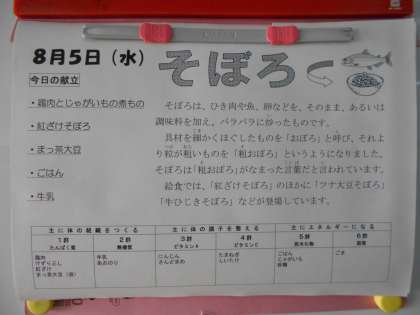 8月5日（水）
そぼろ
今日の献立
・鶏肉とじゃがいもの煮もの
・紅ざけそぼろ
・まっ茶大豆
・ごはん
・牛乳
そぼろは、ひき肉や魚、卵などを、そのまま、あるいは
調味料を加え、パラパラに炒ったものです。
具材を細かくほぐしたものを「おぼろ」と呼び、それよ
り粒が粗いものを「粗おぼろ」というようになりました。
そぼろは「粗おぼろ」がなまった言葉だと言われています。
給食では、「紅ざけそぼろ」のほかに「ツナ大豆そぼろ」
「牛ひじきそぼろ」などが登場しています。
主に体の組織をつくる 主に体の調子を整える 主にエネルギーになる
1群 2群 3群 4群 5群 6群
たんぱく質 無機質 ビタミンA ビタミンC 炭水化物 脂質
鶏肉 牛乳 にんじん たまねぎ ごはん ごま
けずりぶし あおのり さんどまめ しいたけ じゃがいも
紅ざけ 砂糖
まっ茶大豆（袋）